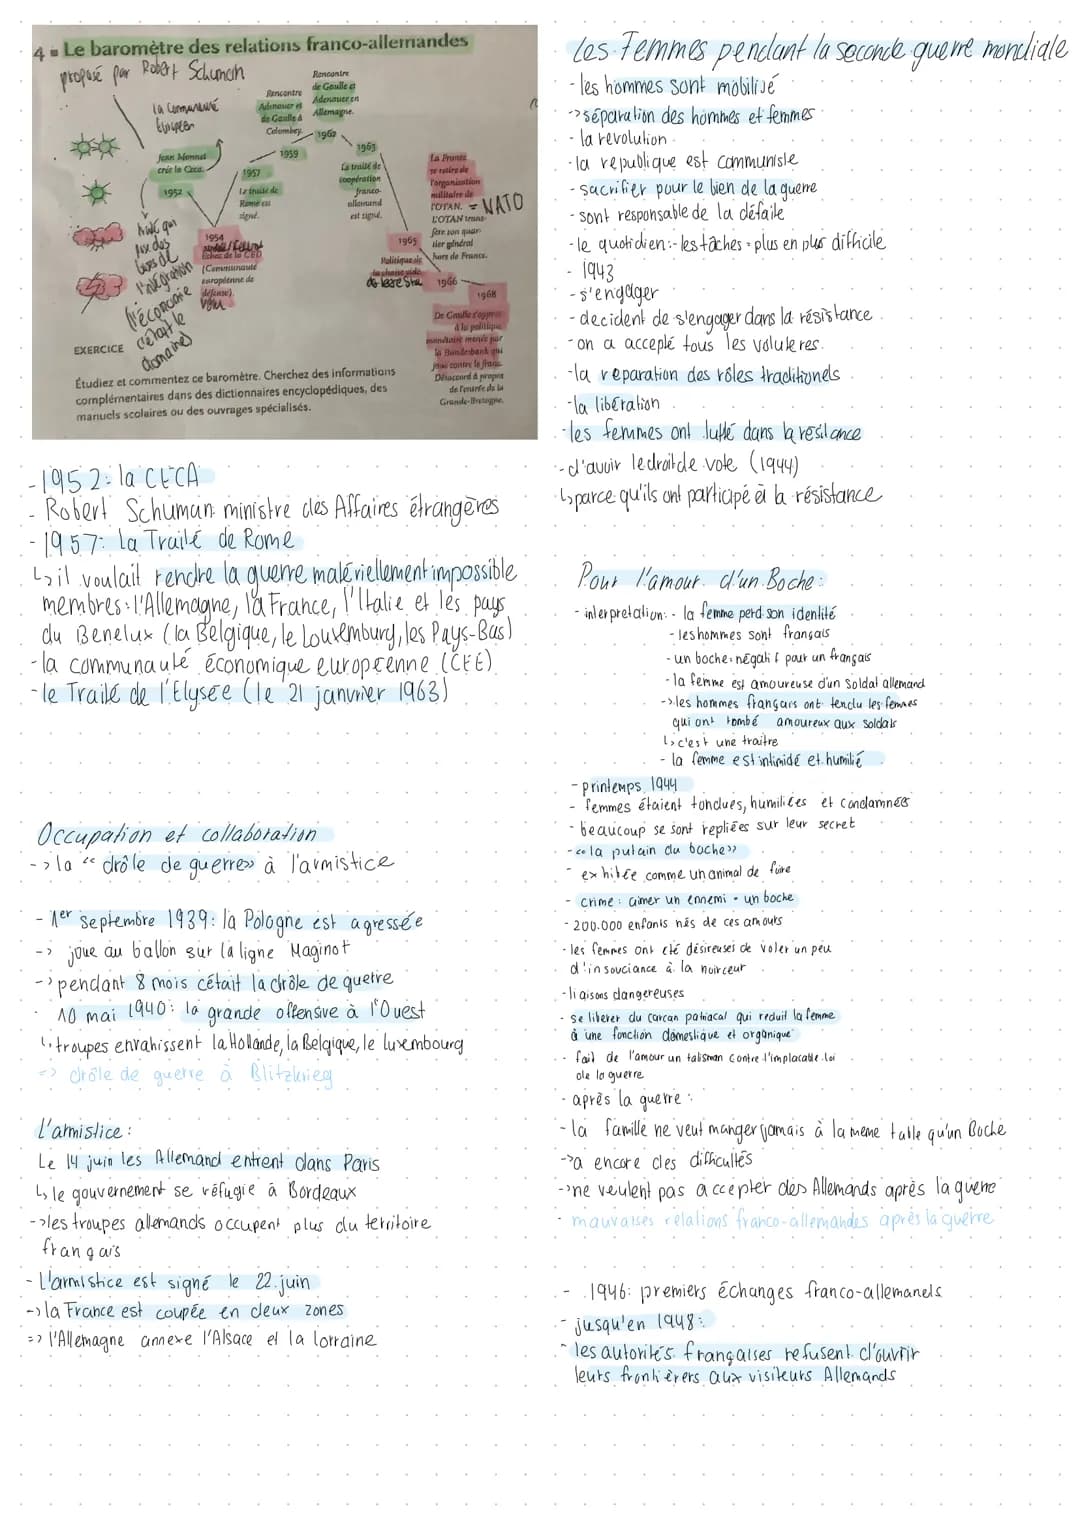 4 Le baromètre des relations franco-allemandes
proposé par Robert Schuman
la Communauté
Européen
Jean Monnet
crée la Ceca.
1952
1954
échec de la CED
(Communauté
européenne de
défense).
1957
Le traité de
Rome est
signé.
1959
Rencontre
Adenauer et
de Gaulle à
Colombey.
Rencontre
de Gaulle et
Adenauer en
Allemagne.
1962
1963
Le traité de
coopération
franco-
allemand
est signé.
1965
Politique de
la chaise vide.
La France
se retire de
l'organisation
militaire de
l'OTAN. = NATO
L'OTAN trans-
fère son quar-
tier général
hors de France.
1966
1968
De Gaulle s'oppose
à la politique
monétaire menée par
la Bundesbank qui
joue contre le franc.
Désaccord à propos
de l'entrée de la
Grande-Bretagne.
l'intégration
l'économie
c'était le
domaine
EXERCICE
Étudiez et commentez ce baromètre. Cherchez des informations
complémentaires dans des dictionnaires encyclopédiques, des
manuels scolaires ou des ouvrages spécialisés.
- 1952: la CECA
- Robert Schuman: ministre des Affaires étrangères
- 1957: la Traité de Rome
↳ il voulait rendre la guerre matériellement impossible
membres: l'Allemagne, la France, l'Italie et les pays
du Benelux (la Belgique, le Louxemburg, les Pays-Bas)
- la communauté économique européenne (CEE)
- le Traité de l'Elysée (le 21 janvrier 1963)
Occupation et collaboration
-> la « drôle de guerre» à l'armistice
- 1er septembre 1939: la Pologne est agressée
-> joue au ballon sur la ligne Maginot
-> pendant 8 mois cétait la drôle de guerre
· 10 mai 1940: la grande offensive à l'Ouest
↳ troupes envahissent la Hollande, la Belgique, le luxembourg
=> drôle de guerre à Blitzkrieg
L'armistice:
Le 14 juin les Allemand entrent dans Paris
↳ le gouvernement se réfugie à Bordeaux
-> les troupes allemands occupent plus du territoire
français
- L'armistice est signé le 22.juin
-> la France est coupée en deux zones
=> l'Allemagne annexe l'Alsace et la lorraine
Les Femmes pendant la seconde guerre mondiale
- les hommes sont mobilisé
-> séparation des hommes et femmes
- la revolution
- la republique est communiste
- sacrifier pour le bien de la guerre
- sont responsable de la défaite
- le quotidien: - les tâches = plus en plus difficile
- 1943
- s'engager
- decident de s'engager dans la résistance
- on a accepté tous les
- la reparation des rôles traditionels
- la libération
- les femmes ont lutté dans la resitance
- d'avoir le droit de vote (1944)
↳ parce qu'ils ont participé à la résistance
Pour l'amour d'un Boche:
- interpretation: - la femme perd son identité
- les hommes sont français
- un boche: négatif pour un français
- la femme est amoureuse d'un soldat allemand
-> les hommes français ont tendu les femmes
qui ont tombé amoureux aux soldats
↳ c'est une traitre
- la femme est intimidé et humilié
- printemps 1944
- femmes étaient tondues, humiliées et condamnées
- beaucoup se sont repliées sur leur secret
- «la putain du boche»
- exhibée comme un animal de foire
- crime: aimer un ennemi = un boche
- 200.000 enfants nés de ces amours
- les femmes ont été désireuses de voler un peu
d'insouciance à la noirceur
- liaisons dangereuses
- se liberer du carcan patriacal qui reduit la femme
à une fonction domestique et organique
- fait de l'amour un talisman contre l'implacable loi
de la guerre
- après la guerre:
- la famille ne veut manger jamais à la meme table qu'un Boche
-> a encore des difficultés
-> ne veulent pas accepter des Allemands après la guerre
- mauvaises relations franco-allemandes après la guerre
- 1946: premiers échanges franco-allemands
- jusqu'en 1948:
- les autorités françaises refusent d'ouvrir
leurs frontièrers aux visiteurs Allemands